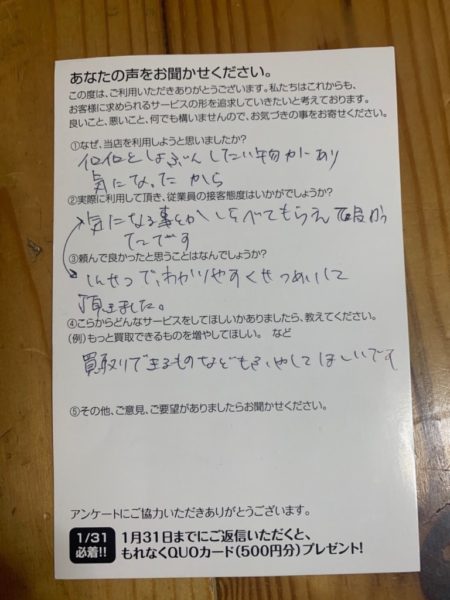 あなたの声をお聞かせください。
この度は、ご利用いただきありがとうございます。私たちはこれからも、
お客様に求められるサービスの形を追求していきたいと考えております。
良いこと、悪いこと、何でも構いませんので、お気づきの事をお寄せください。
①なぜ、当店を利用しようと思いましたか?
イロイロとしょぶんしたい物があり
気になったから
②実際に利用して頂き、従業員の接客態度はいかがでしょうか?
気になる事とかしらべてもらえて良かっ
たです
③頼んで良かったと思うことはなんでしょうか?
しんせつで、わかりやすくせつめいして
頂きました。
④こらからどんなサービスをしてほしいかありましたら、教えてください。
(例)もっと買取できるものを増やしてほしい。 など
買取りできるものなどもふやしてほしいです
⑤その他、ご意見、ご要望がありましたらお聞かせください。
アンケートにご協力いただきありがとうございます。
1/31
必着!!
1月31日までにご返信いただくと、
もれなくQUOカード(500円分)プレゼント!